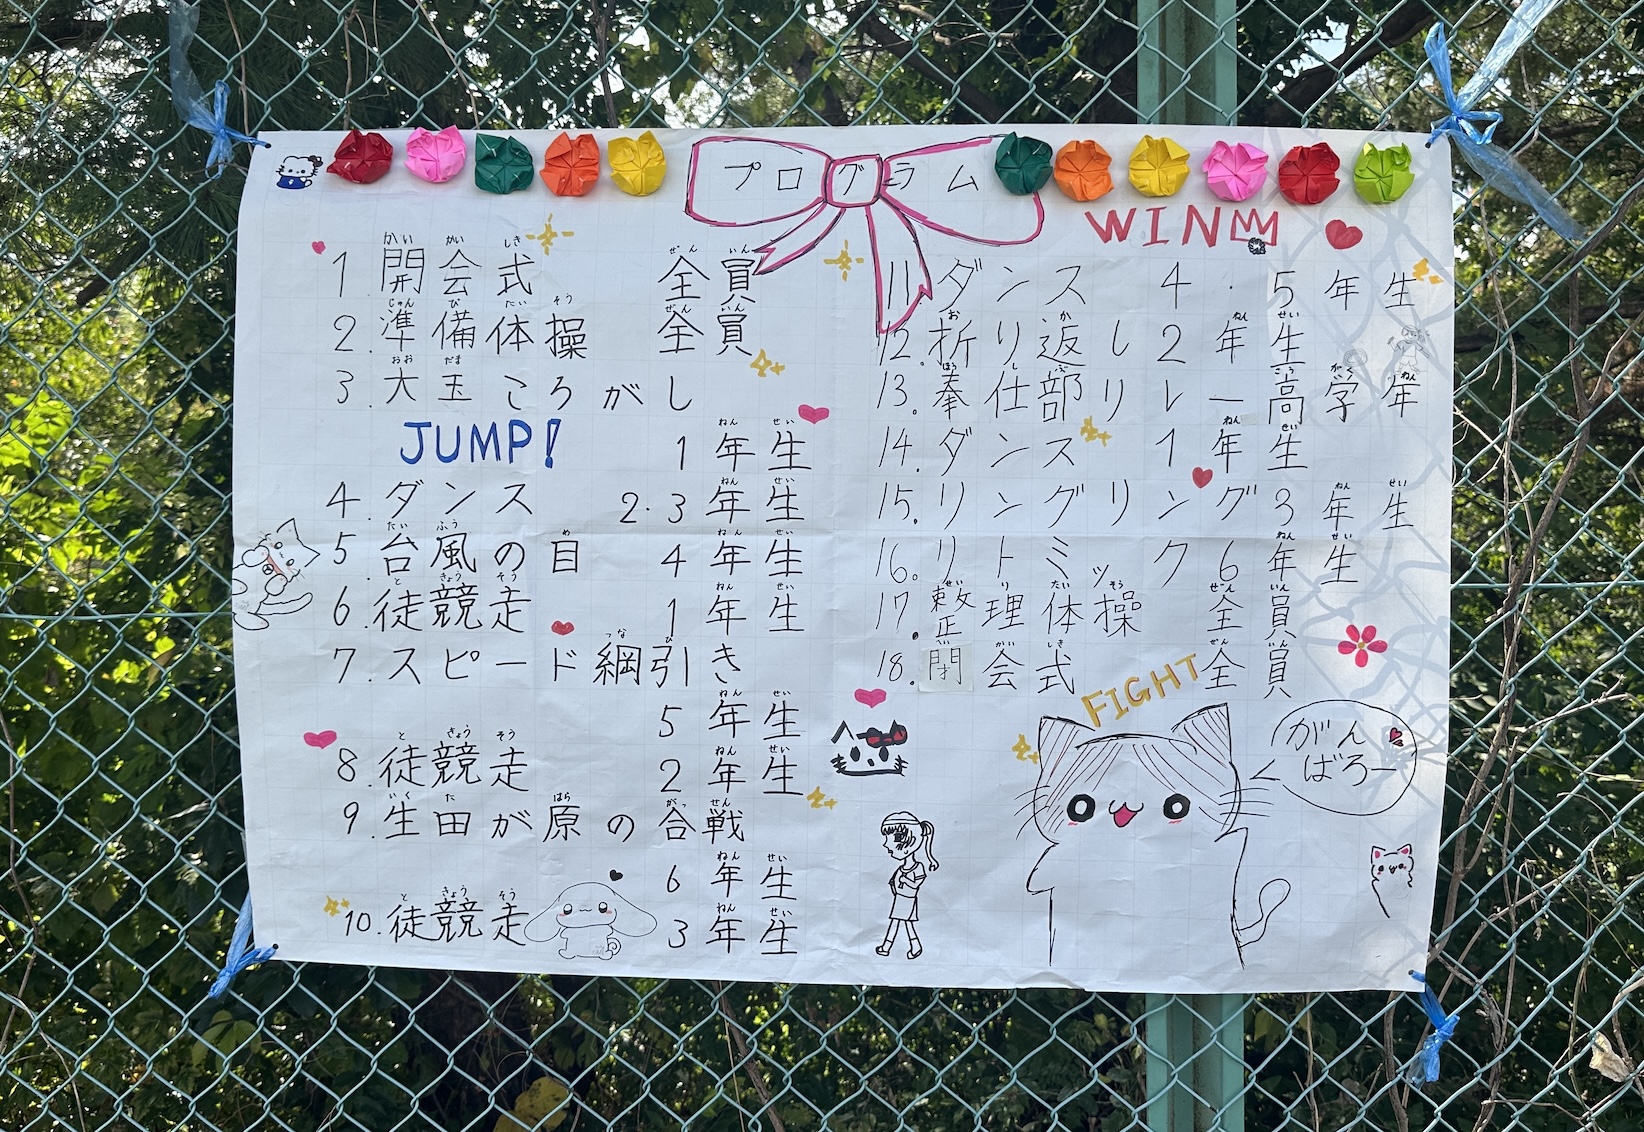 プログラム
1.開会式 全員
2.準備体操 全員
3.大玉ころがし
JUMP!
1年生
4.ダンス 2・3年生
5.台風の目 4年生
6.徒競走 1年生
7.スピード綱引き
5年生
8.徒競走 2年生
9.生田が原の合戦
6年生
10.徒競走 3年生
WIN
11.ダンス 4・5年生
12.折り返し 2年生
13.奉仕部リレー高学年
14.ダンス 1年生
15.リングリング 3年生
16.リトミック 6年生
17.整理体操 全員
18.閉会式 全員
FIGHT
がん
ばろー